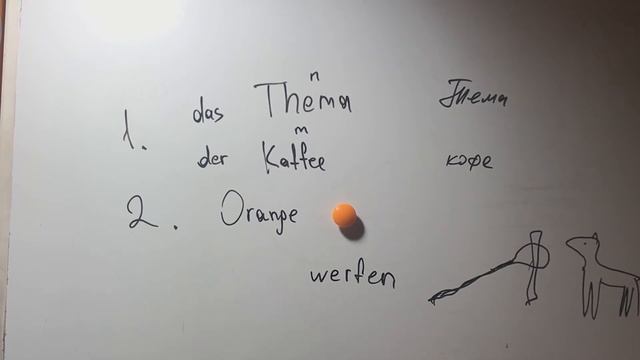 n
1. das Thema Тема
m
der Kaffee кофе
2. Orange
werfen